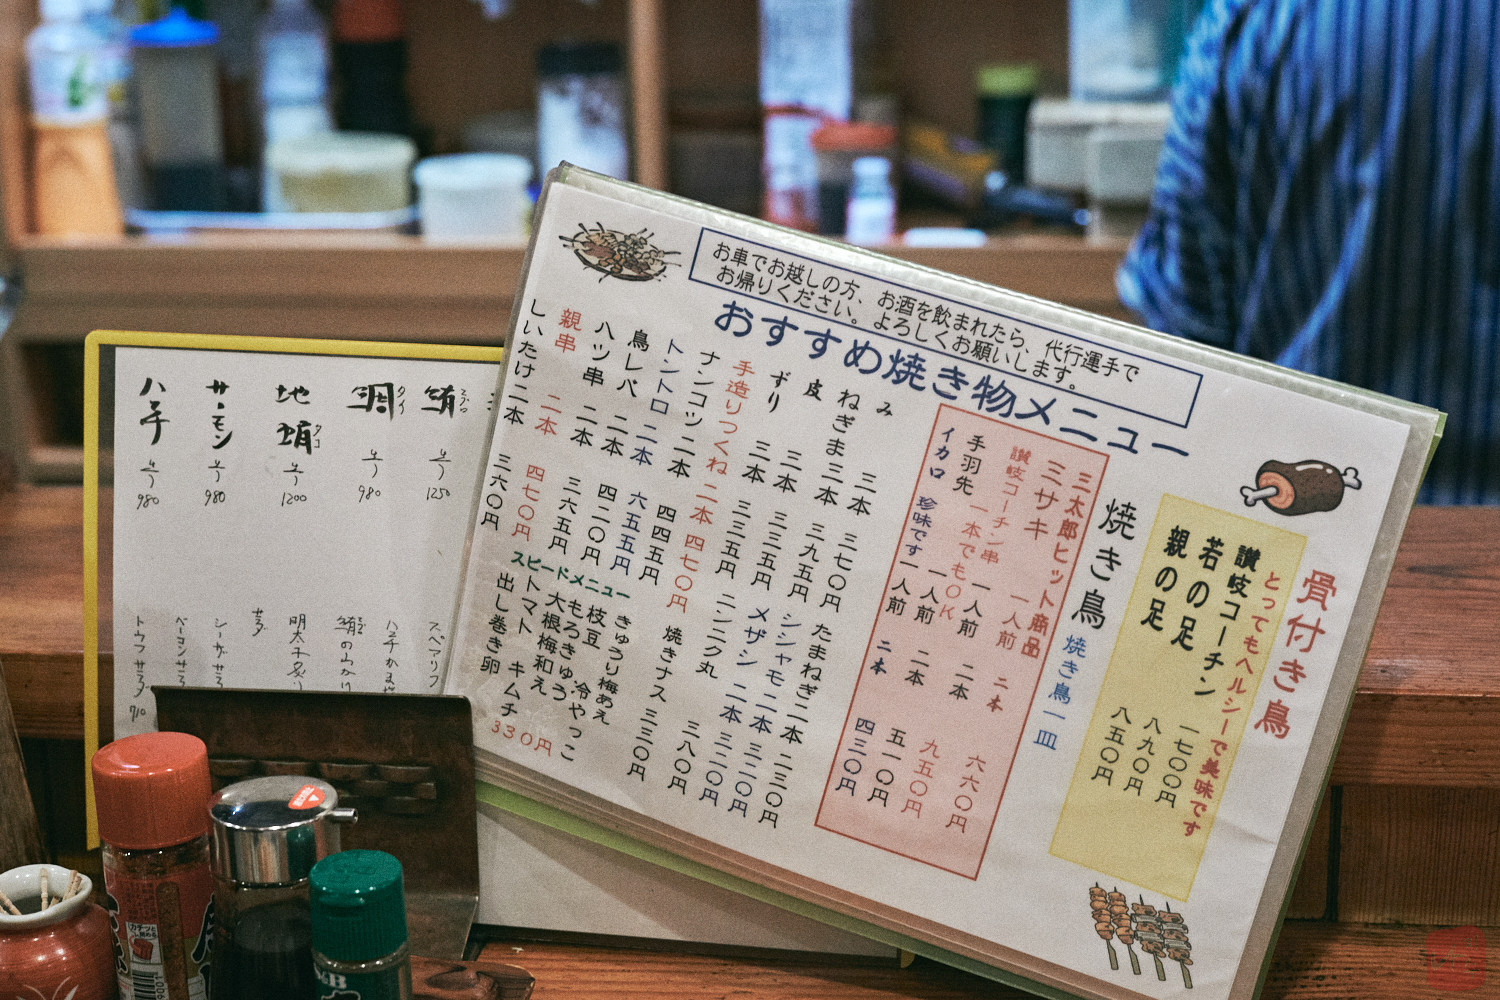 お車でお越しの方、お酒を飲まれたら、代行運手で
お帰りください。よろしくお願いします。
おすすめ焼き物メニュー
骨付き鳥
とってもヘルシーで美味です
讃岐コーチン 一七〇〇円
若の足 八九〇円
親の足 八五〇円
焼き鳥 焼き鳥一皿
三太郎ヒット商品
ミサキ 一人前 二本 六六〇円
讃岐コーチン串 一人前 二本 九五〇円
手羽先 一本でもOK 一人前 二本 五一〇円
イカロ 珍味です 一人前 二本 四三〇円
み 三本 三七〇円
ねぎま 三本 三九五円
皮 三本 三三五円
ずり 三本 三三五円
手造りつくね 二本 四七〇円
ナンコツ 二本 四四五円
トントロ 二本 六五五円
鳥レバ 二本 四二〇円
ハツ串 二本 三六五円
親串 二本 四七〇円
しいたけ 二本 三六〇円
たまねぎ 二本 二三〇円
シシャモ 二本 三二〇円
メザシ 二本 三二〇円
ニンニク丸 三八〇円
焼きナス 三三〇円
スピードメニュー
きゅうり梅あえ
枝豆 冷やっこ
もろきゅう
大根梅和え
トマト キムチ
出し巻き卵
330円
鮪 マグロ 1250
鯛 タイ 980
地蛸 タコ 1200
サーモン 980
ハマチ 980
スペアリブ
ハマチかま
鮪の山かけ
明太子炙り
シーザーサラダ
ベーコンサラダ
トウフサラダ 710